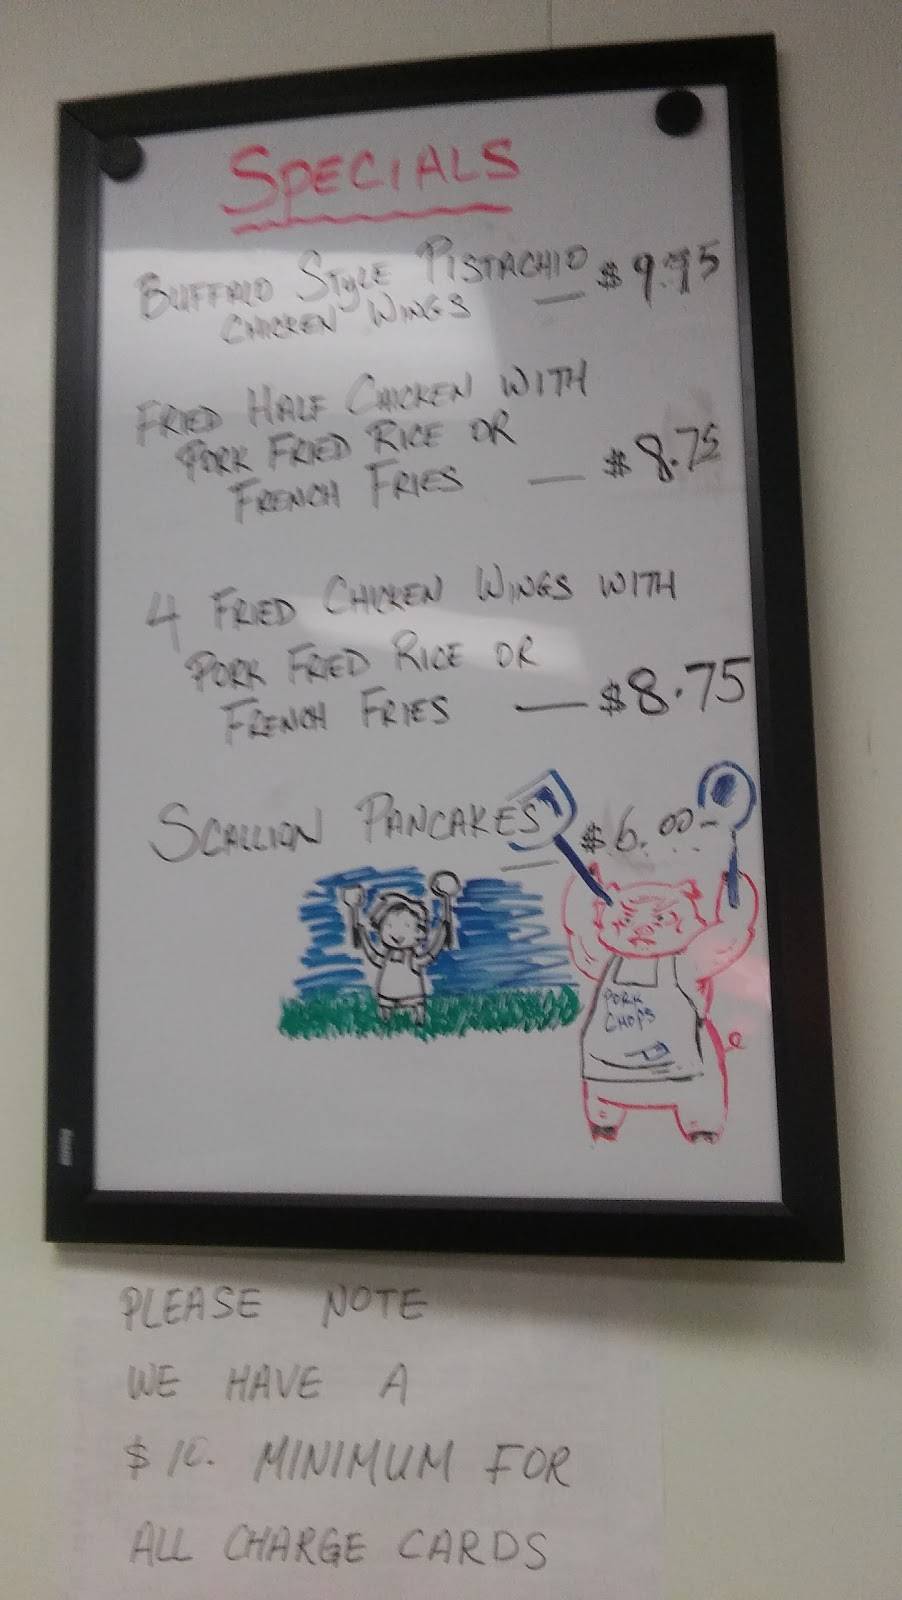 SPECIALS
BUFFALO STYLE PISTACHIO
CHICKEN WINGS — $9.95
FRIED HALF CHICKEN WITH
PORK FRIED RICE OR
FRENCH FRIES — $8.75
4 FRIED CHICKEN WINGS WITH
PORK FRIED RICE OR
FRENCH FRIES — $8.75
SCALLION PANCAKES — $6.00
PORK
CHOPS
PLEASE NOTE
WE HAVE A
$10. MINIMUM FOR
ALL CHARGE CARDS